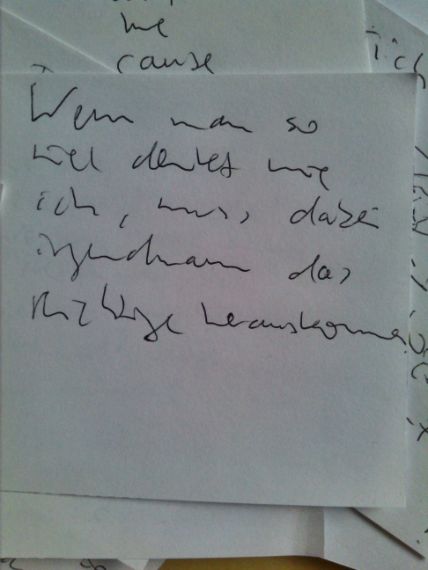 me
cause
ich
Wenn man so
viel denkt wie
ich, muss dabei
irgendwann das
Richtige herauskommen